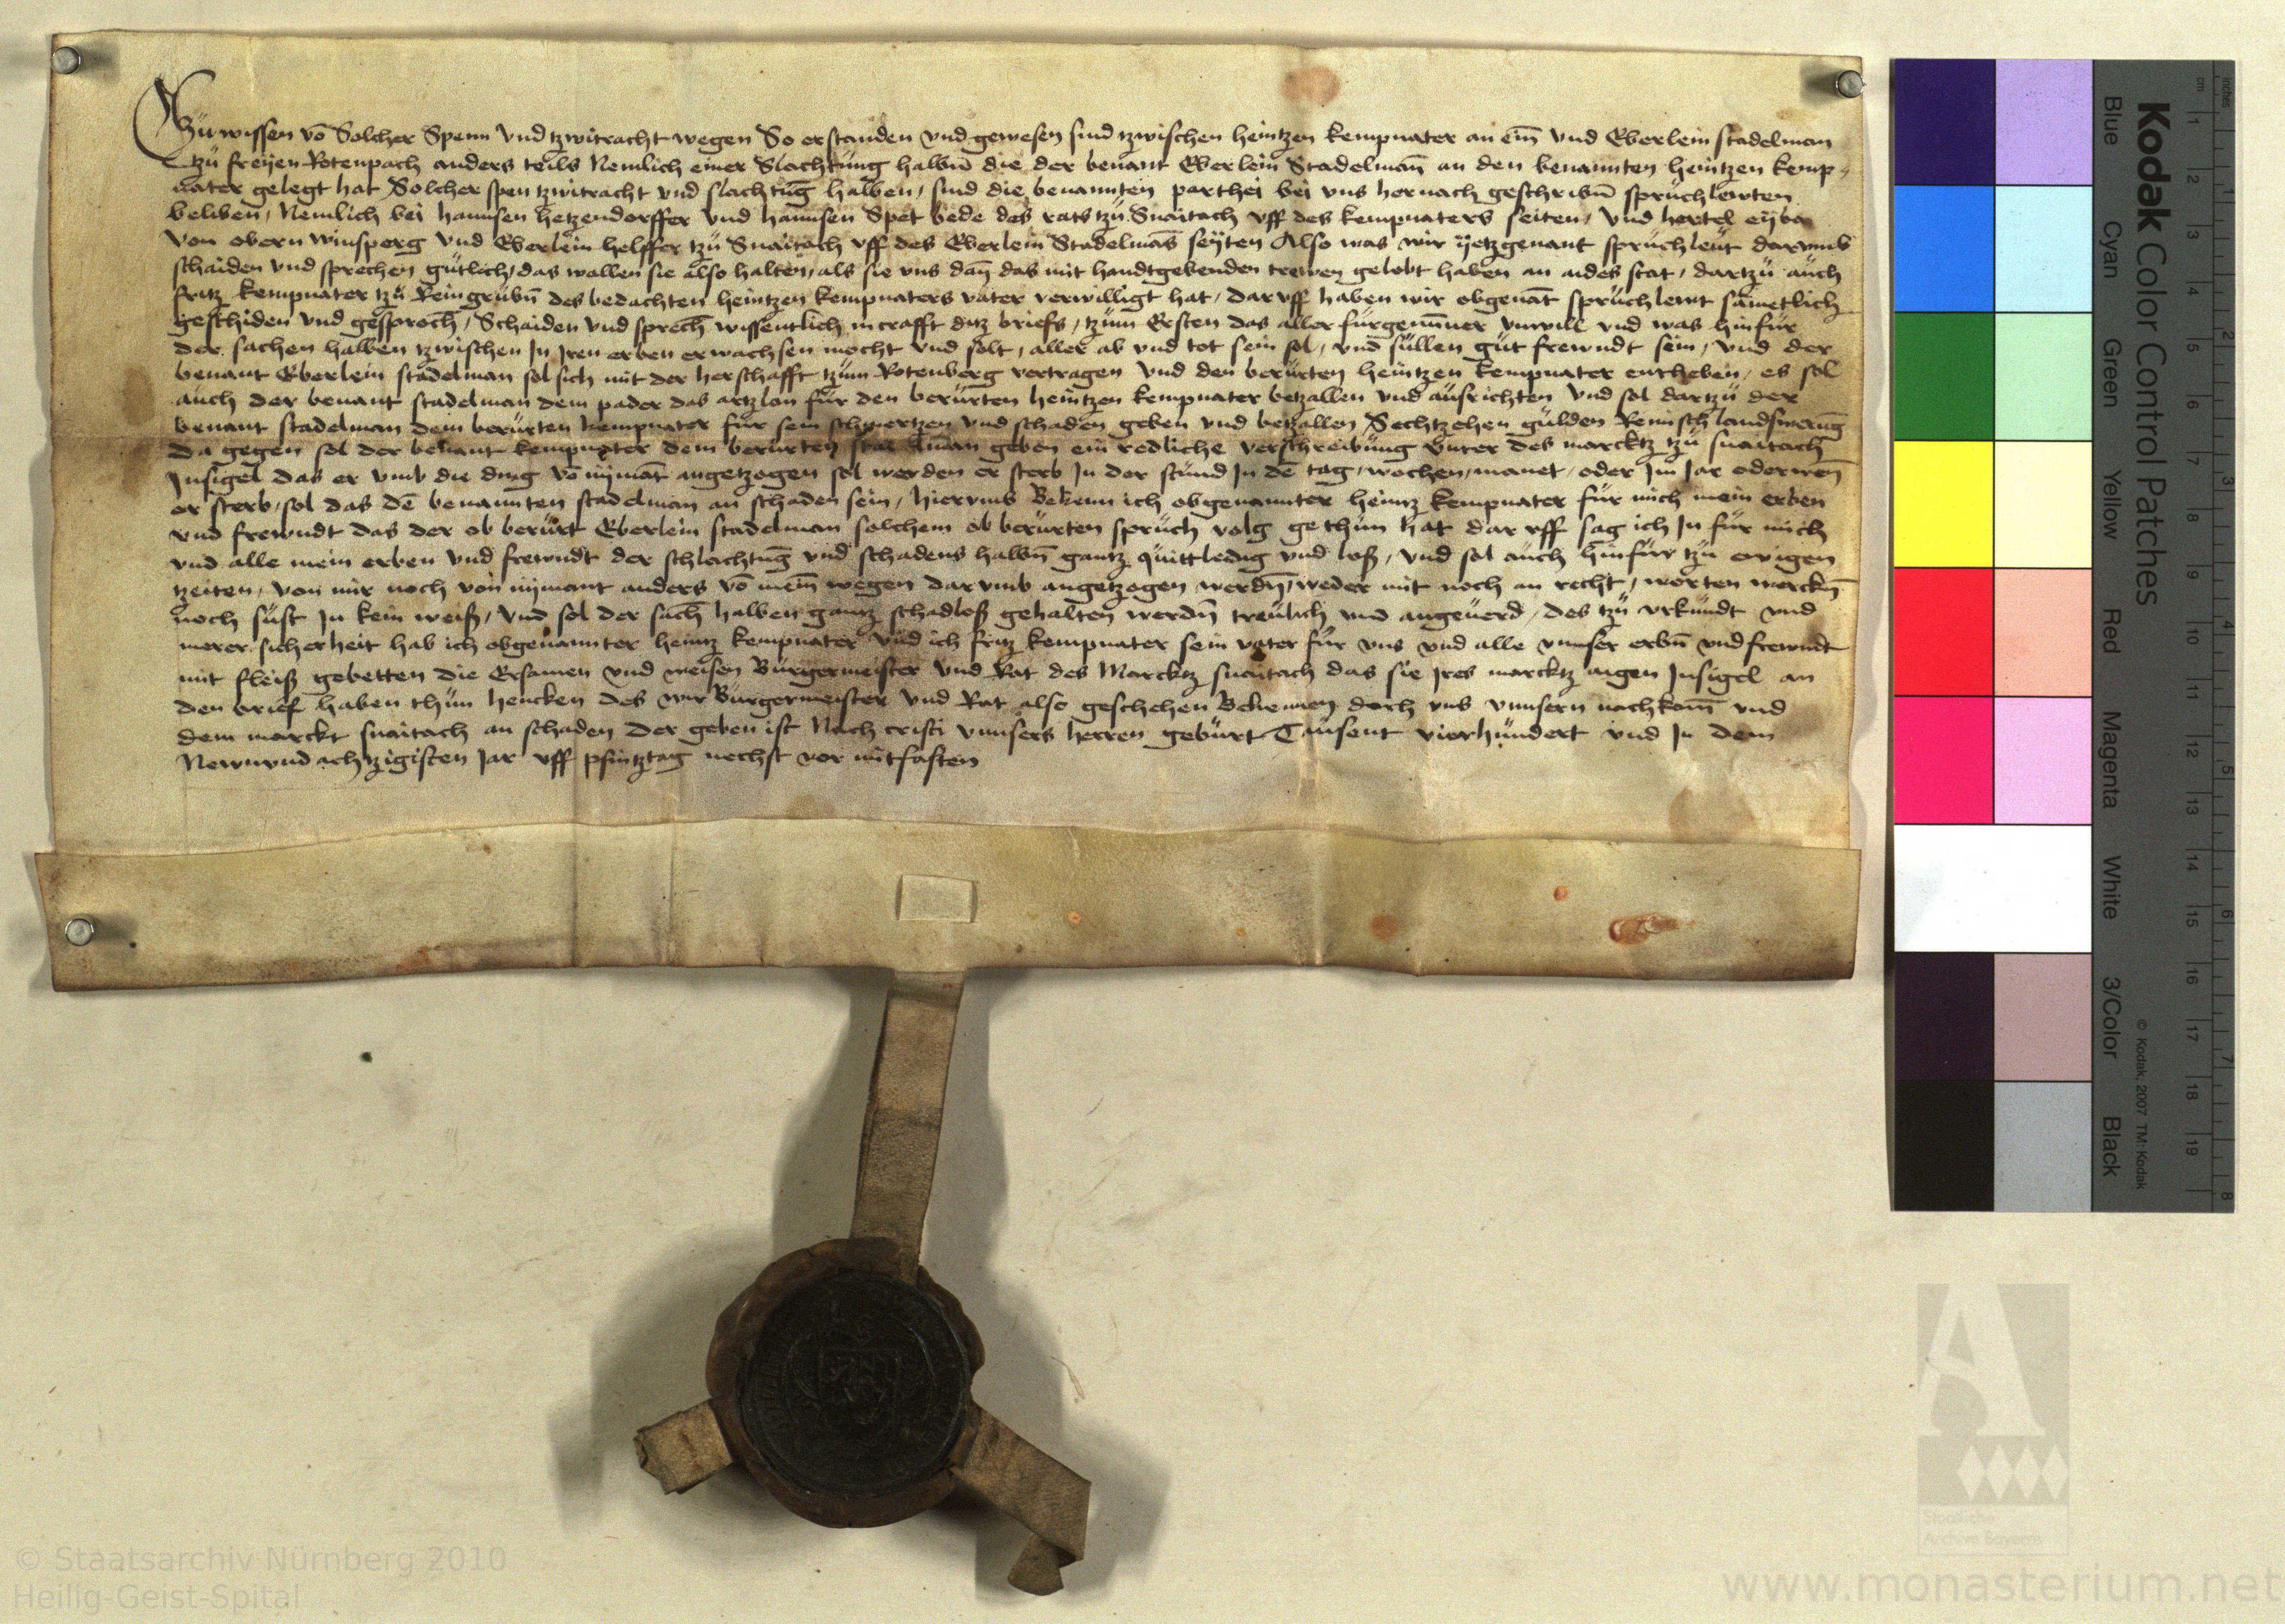 Zu wissen vō Solcher Spenn vnd tzwitracht wegen So erstanden vnd gewesen sind tzwischen heintzen kempnater an eim̄ vnd Eberlein stadelman
tzü freÿen Rotenpach anders teils Nemlich einer Slachtüng halbn̄ die der benant Eberlein Stadelman̄ an den benannten heintzen kemp-
nater gelegt hat Solcher spen tzwitracht vnd slachtūg halben, sind die benannten parthei bei vns hernach geschribn̄ sprüchlewten
beliben, Nemlich bei hannsen hetzendorffer vnd hannsen Spet bede des rats tzü Snaitach vff des kempnaters seiten, vnd hertel
von obern winsperg vnd Eberlein helffer tzü Snaitach vff des Eberlein Stadelmās seÿten Also was wir ÿetzgenant sprüchleüt darümb
schaiden vnd sprechen gütlich, das wollen sie also halten, als sie vns dan̄ das mit handtgebenden trewen gelobt haben an aides stat, dartzü auch
fritz kempnater tzü Reingrübn̄ des bedachten heintzen kempnaters vater verwilligt hat, dar vff haben wir obgenāt sprüchlewt sämetlich
geschiden vnd gesproch̄, Schaiden vnd sprech̄ wissentlich in crafft ditz briefs, tzüm Ersten das aller fürgenūner vnwill vnd was hinfür
der sachen halben tzwischen In Iren erben erwachsen mocht vnd solt, aller ab vnd tot sein sol, vnd süllen güt frewndt sein, vnd der
benant Eberlein stadelman sol sich mit der herschafft tzüm Rotenberg vertragen vnd den berürten heintzen kempnater entheben, es sol
auch der benant stadelman dem pader das artzlon für den berürten heintzen kempnater betzallen vnd ausrichten vnd sol dartzü der
benant stadelman dem berürten kempnater für sein schmertzen vnd schaden geben vnd betzallen Sechtzehen gülden Reinisch landswerūg
Da gegen sol der benant kempnater dem berürten stadelman geben ein redliche verschreibüng vnter des marcktz tzü snaitach
Insigel das er vmb die ding vō nÿmāt angetzogen sol werden er sterb In der stünd In dē tag, wochen, manet, oder Im Jar oder wen̄
er sterb, sol das dē benannten stadelman an schaden sein, hierumb Bekenn ich obgenannter heintz kempnater für mich mein erben
vnd frewndt das der ob berürt Eberlein stadelman solchem ob berürten sprüch volg gethün hat dar vff sag ich In für mich
vnd alle mein erben vnd frewndt der schlachtūg vnd schadens halbn̄ gantz quittledig vnd loß, vnd sol auch hinfür tzü ewigen
tzeiten, von mir noch von nÿmant anders vō mein̄ wegen darvmb angetzogen werdn̄, weder mit noch an recht, worten wercken̄
noch süst In kein weiß, vnd sol der sach̄ halben gantz schadloß gehalten werdn̄ treülich vnd angeuerd, des tzü vrkündt vnd
merer sicherheit hab ich obgenannter heintz kempnater vnd ich fritz kempnater sein vater für vns vnd alle vnnser erbn̄ vnd frewndt
mit fleiß gebetten die Ersamen vnd weisen Bürgermeister vnd Rat des Marcktz snaitach das sie Ires marcktz aigen Insigel an
den brief haben thün hencken des wir Bürgermeister vnd Rat also geschehen Bekennen doch vns vnnsern nachkom̄ vnd
dem marckt snaitach an schaden Der geben ist Nach cristi vnnsers herren gebürt Taüsent vierhündert vnd In dem
Newnvnd achtzigisten Jar vff pfintztag nechst vor mitfasten
Kodak Color Control Patches
Blue Cyan Green Yellow Red Magenta White 3/Color Black
© Kodak, 2007 TM: Kodak
inches 1 2 3 4 5 6 7 8
cm 1 2 3 4 5 6 7 8 9 10 11 12 13 14 15 16 17 18 19
Staatliche
Archive Bayerns
© Staatsarchiv Nürnberg 2010
Heilig-Geist-Spital
www.monasterium.net